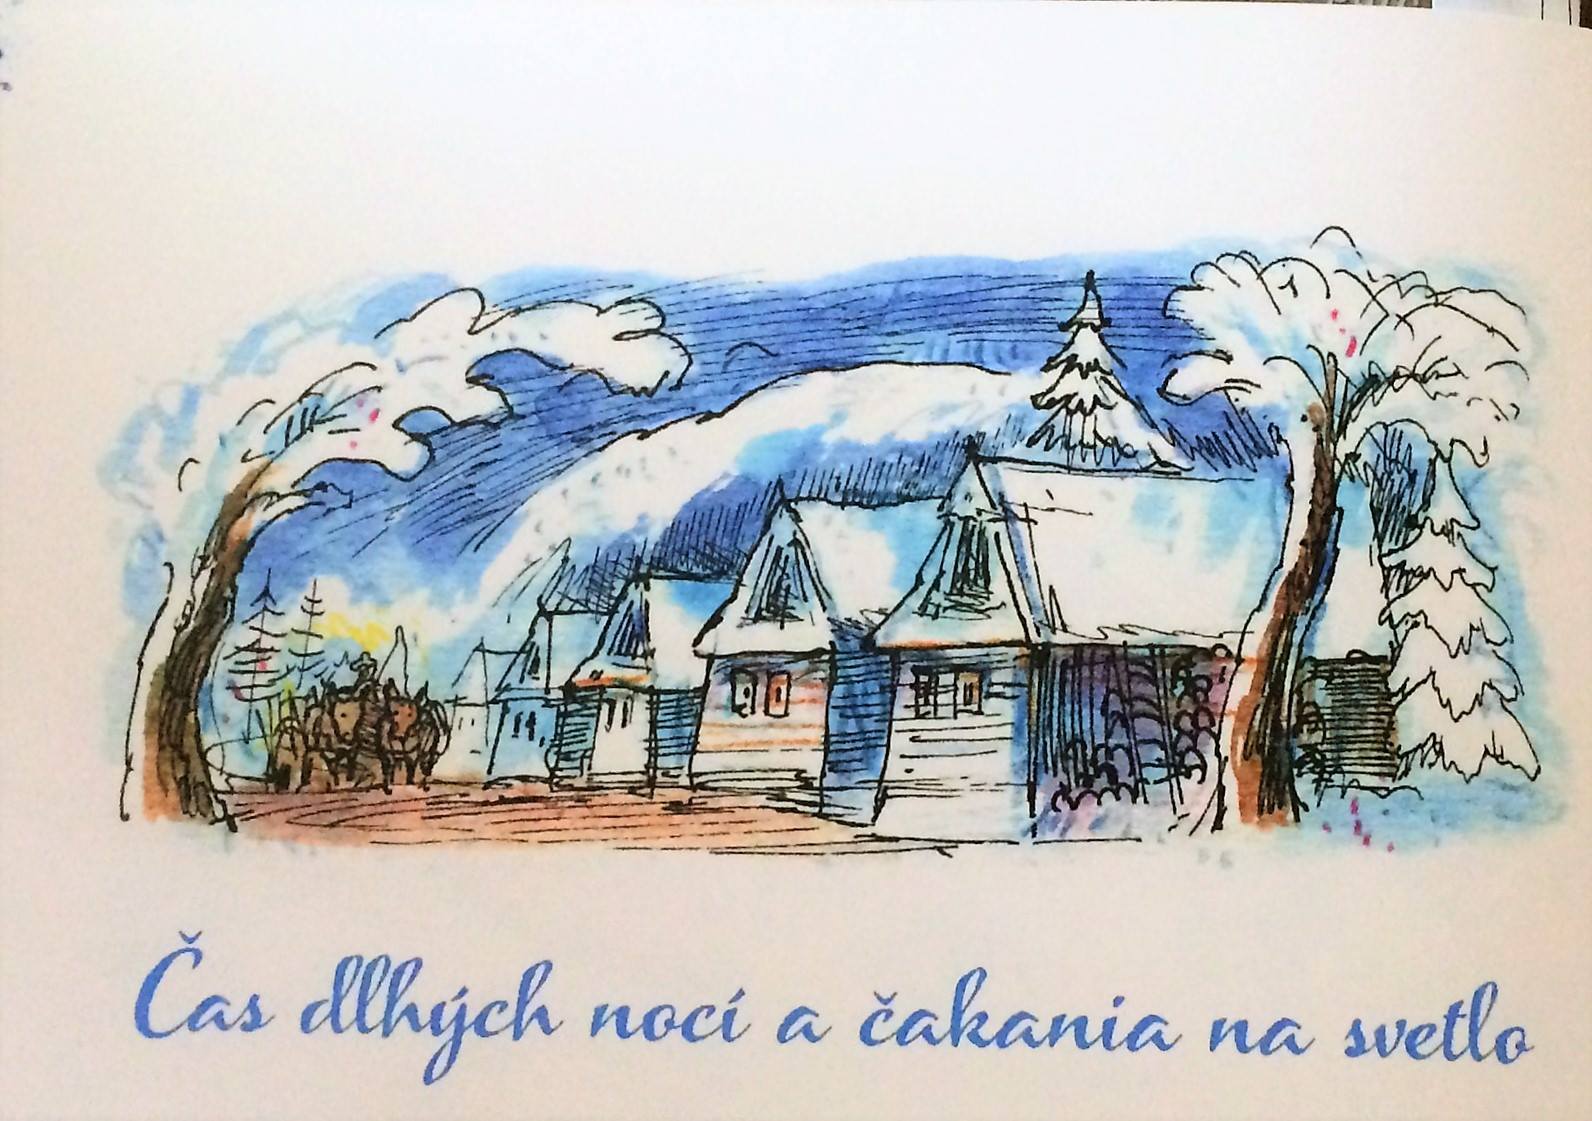 Čas dlhých nocí a čakania na svetlo